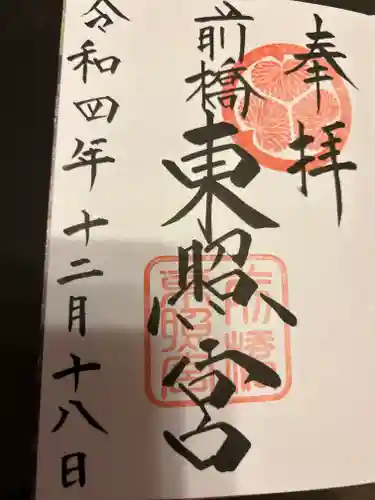 奉拝
前橋
東照宮
前橋
東照宮
令和四年十二月十八日